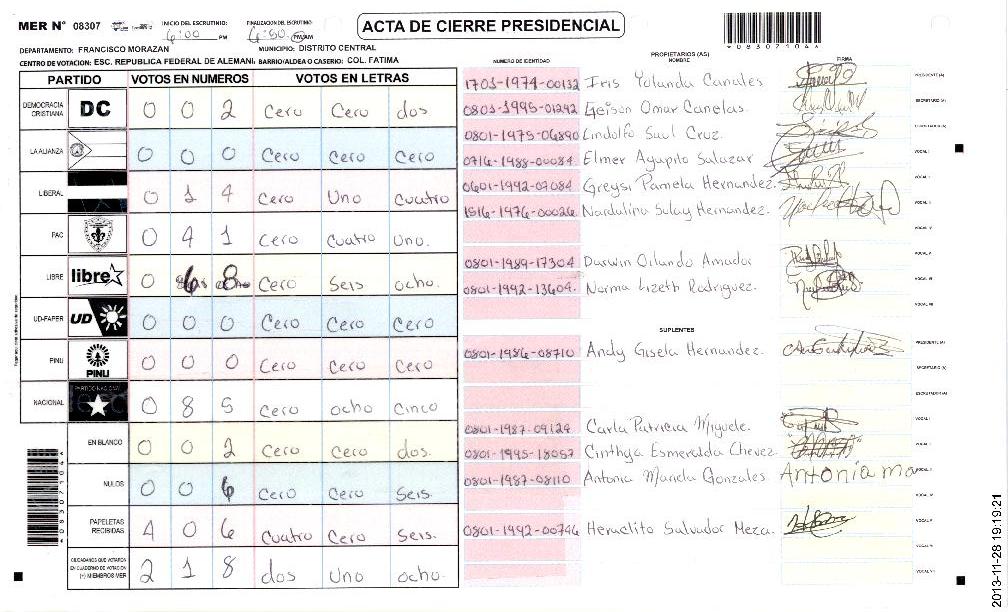 MER N° 08307
INICIO DEL ESCRUTINIO: 6:00 PM
FINALIZACION DEL ESCRUTINIO: 6:50 PM/AM
ACTA DE CIERRE PRESIDENCIAL
*08307104*
DEPARTAMENTO: FRANCISCO MORAZAN
MUNICIPIO: DISTRITO CENTRAL
CENTRO DE VOTACION: ESC. REPUBLICA FEDERAL DE ALEMANI BARRIO/ALDEA O CASERIO: COL. FATIMA
PARTIDO VOTOS EN NUMEROS VOTOS EN LETRAS
DEMOCRACIA CRISTIANA DC 0 0 2 Cero Cero dos
LA ALIANZA 0 0 0 Cero Cero Cero
LIBERAL 0 1 4 Cero Uno Cuatro
PAC 0 4 1 Cero Cuatro Uno.
LIBRE libre 0 6 8 Cero Seis ocho.
UD-FAPER UD 0 0 0 Cero Cero Cero
PINU PINU 0 0 0 Cero Cero Cero
NACIONAL PARTIDO NACIONAL 0 8 5 Cero ocho Cinco
EN BLANCO 0 0 2 Cero Cero dos.
NULOS 0 0 6 Cero Cero Seis.
PAPELETAS RECIBIDAS 4 0 6 Cuatro Cero Seis.
CIUDADANOS QUE VOTARON EN CUADERNO DE VOTACION (+) MIEMBROS MER 2 1 8 dos Uno ocho.
NUMERO DE IDENTIDAD PROPIETARIOS (AS) NOMBRE FIRMA
1703-1974-00132 Iris Yolanda Canales PRESIDENTE (A)
0803-1995-01292 Geison Omar Canelas. SECRETARIO (A)
0801-1975-06890 Lindolfo Saul Cruz. ESCRUTADOR (A)
0716-1988-00084 Elmer Agapito Salazar VOCAL I
0601-1992-02084 Greysi Pamela Hernandez. VOCAL II
1516-1976-00026 Nordalina Sulay Hernandez.
VOCAL V
0801-1989-17304 Darwin Orlando Amador
0801-1992-13604. Norma Lizeth Rodriguez.
SUPLENTES
0801-1986-08710 Andy Gisela Hernandez. PRESIDENTE (A)
SECRETARIO (A)
ESCRUTADOR (A)
0801-1987-09129 Carla Patricia Miguele. VOCAL I
0801-1995-18057 Cinthya Esmeralda Chevez.
0801-1987-08110 Antonia Mariela Gonzales Antonia ma
0801-1992-00746 Heraclito Salvador Meza. VOCAL V
2013-11-28 19:19:21